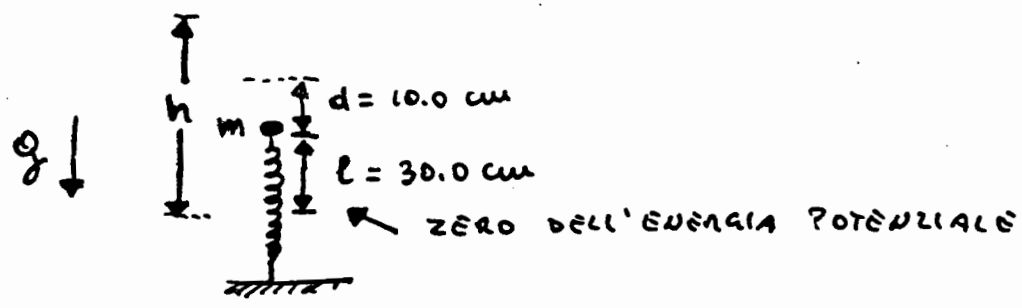 h
d = 10.0 cm
m
g
l = 30.0 cm
ZERO DELL'ENERGIA POTENZIALE